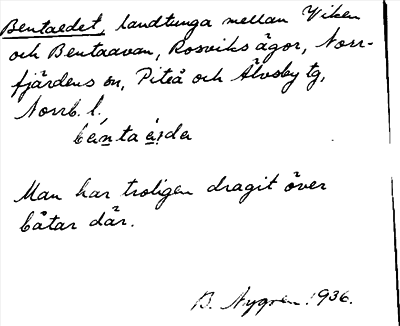 Bentaedet, landtunga mellan Viken
och Bentaavan, Rosviks ägor, Norr-
fjärdens sn, Piteå och Älvsby tg,
Norrb. l.
Man har troligen dragit över
båtar där.
B. Nygren 1936.